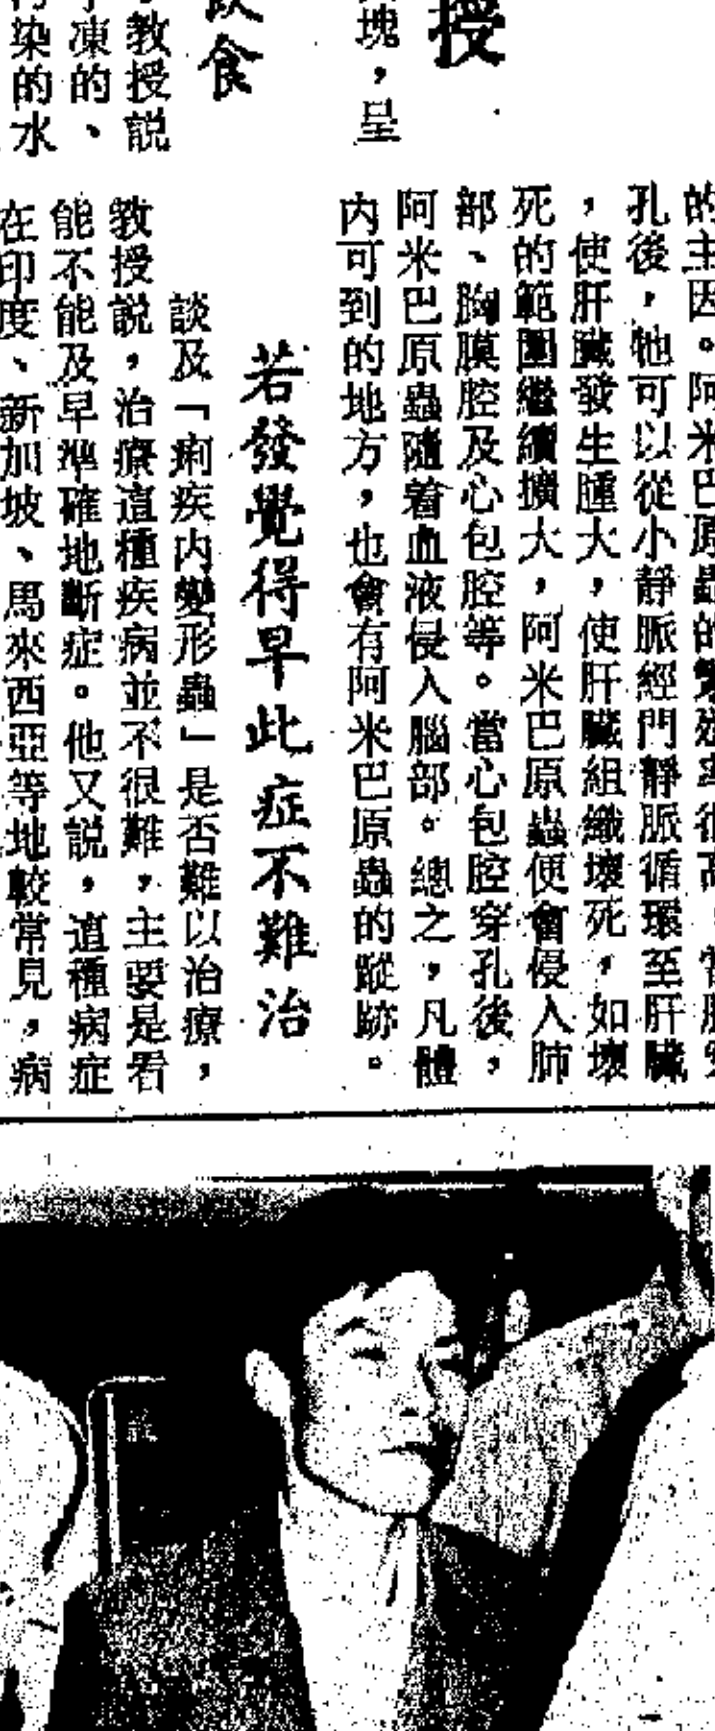 授
塊，呈
飲食
教授説
凍的、
染的水
的主因。阿米巴原蟲的繁
孔後，牠可以從小靜脈經門靜脈循環至肝臟
，使肝臟發生腫大，使肝臟組織壞死，如壞
死的範圍繼續擴大，阿米巴原蟲便會侵入肺
部、胸膜腔及心包腔等。當心包腔穿孔後，
阿米巴原蟲隨着血液侵入腦部。總之，凡體
內可到的地方，也會有阿米巴原蟲的蹤跡。
若發覺得早此症不難治
談及「痢疾內變形蟲」是否難以治療，
教授説，治療這種疾病並不很難，主要是看
能不能及早準確地斷症。他又説，這種病症
在印度、新加坡、馬來西亞等地較常見，病